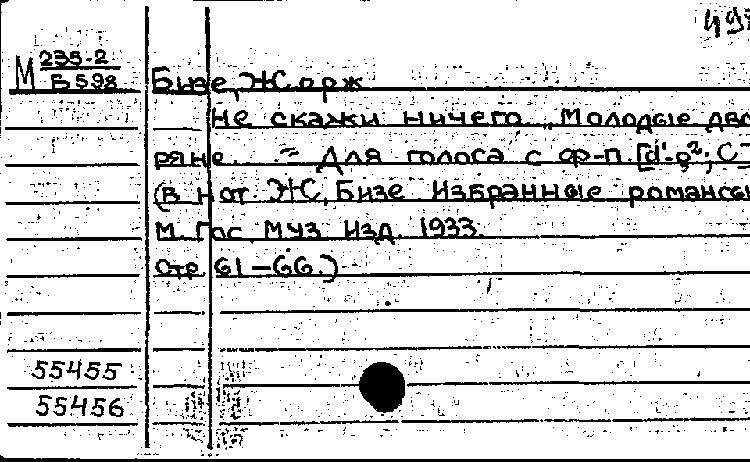 49
М 235-2
Б 598
Бизе, Жорж
Не скажи ничего. „Молодые дво
ряне... = Для голоса с ф-п. [d'-g²; C
(в нот. Ж. Бизе Избранные романсы
М. Гос. Муз. Изд. 1933.
Стр. 61-66.)
55455
55456